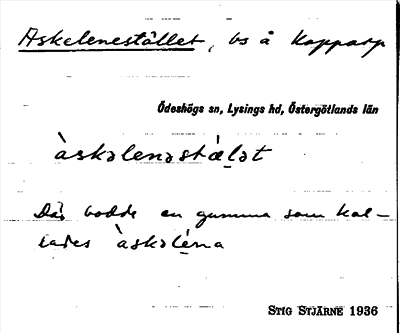 Askelenestället, bs å Kopparp
Ödeshögs sn, Lysings hd, Östergötlands län
àskəlenəstæ̀lət
Där bodde en gumma som kal-
lades àskəléna
STIG STJÄRNE 1936